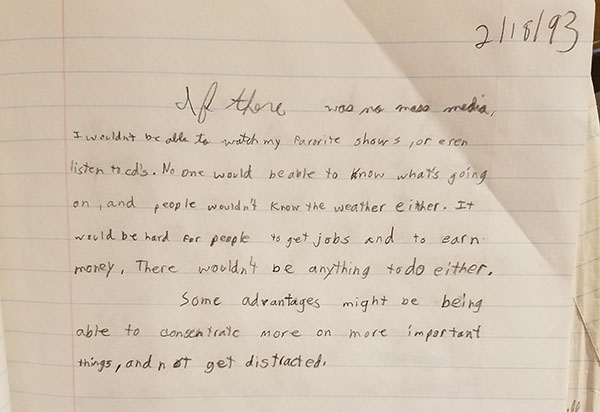 2/18/93
If there was no mass media,
I wouldn't be able to watch my favorite shows, or even
listen to cd's. No one would be able to know what's going
on, and people wouldn't know the weather either. It
would be hard for people to get jobs and to earn
money. There wouldn't be anything to do either.
Some advantages might be being
able to consentrate more on more important
things, and not get distracted.